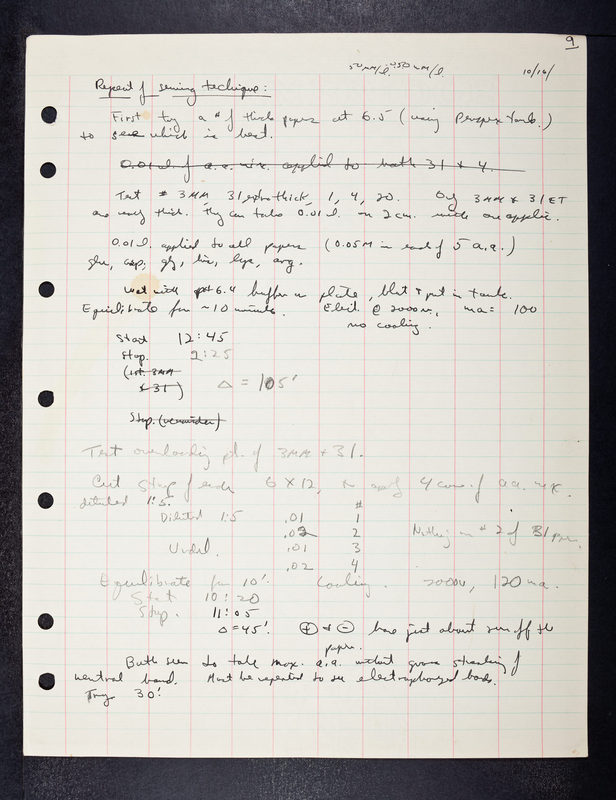 9
10/16/
Repeat of technique:
First try a # of thick papers at 6.5 (using Perspex Tank.)
to see which is best.
0.01 l. of a.a. mix. applied to both 31 + 4.
Test # 3MM 31 extra thick, 1, 4, 20. Only 3MM & 31ET
are very thick. They can take 0.01 l. on 2 cm. wide one applic.
0.01 l. applied to all papers (0.05M in each of 5 a.a.)
glu, asp, gly, his, lys, arg.
Wet with pH 6.4 buffer on plate, blot + put in tank.
Equilibrate for ~10 minutes. @ 2000v, ma = 100
no cooling.
Start 12:45
Stop. 2:25
(1st. 3MM
& 31)
Δ = 105'
Stop. (remainder)
Test overloading pt. of 3MM + 31.
Cut strip of each 6 X 12, 4 conc. of a.a. mix.
diluted 1:5.
#
Diluted 1:5 .01 1
.02 2 Nothing on #2 of 31
Undil. .01 3
.02 4
Equilibrate for 10'. Cooling. 2000v, 120 ma.
Start 10:20
Stop. 11:05
Δ = 45'. ⊕ + ⊖ have just about run off the
paper.
Both seem to take max. a.a. without gross streaking of
neutral band. Must be repeated to see electrophoresed bands.
Try 30'.